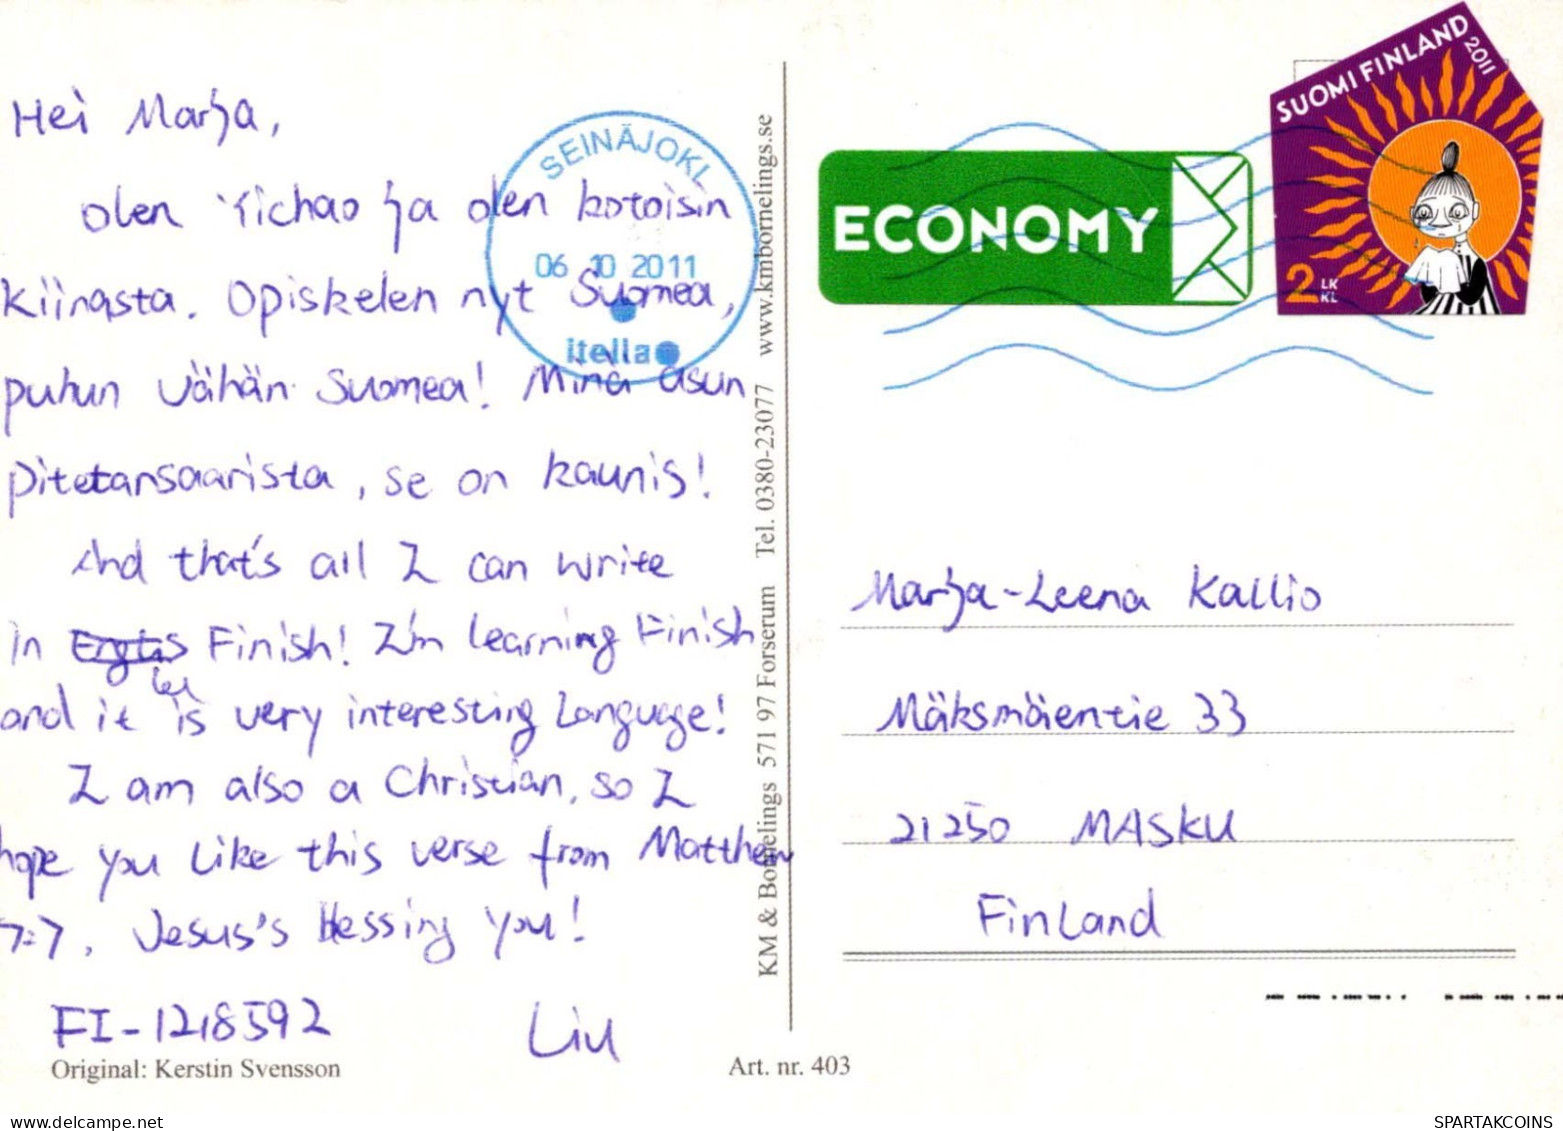 Hei Marja,
olen Yichao ja olen kotoisin
Kiinasta. Opiskelen nyt Suomea,
puhun vähän Suomea! Minä asun
pitetarsaarista, se on kaunis!
And that's all I can write
in Finish! I'm learning Finish
and it is very interesting Language!
I am also a Christian, so I
hope you like this verse from Matthew
7:7, Jesus's blessing you!
FI-1218592 Liu
Original: Kerstin Svensson
SEINÄJOKI
06.10 2011
itella
KM & Bornelings 571 97 Forserum Tel. 0380-23077 www.kmbornelings.se
Art. nr. 403
ECONOMY
SUOMI FINLAND
2011
2 LK
KL
Marja-Leena Kallio
Mäksmäentie 33
21250 MASKU
Finland
www.delcampe.net
SPARTAKCOINS